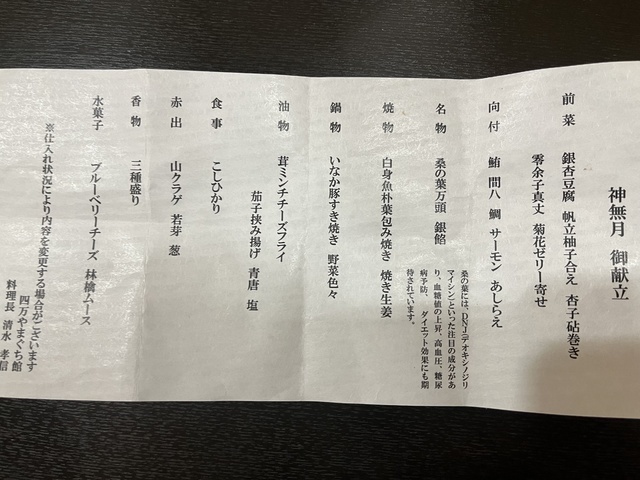 神無月 御献立
前菜 銀杏豆腐 帆立柚子合え 杏子砧巻き
零余子真丈 菊花ゼリー寄せ
向付 鮪 間八 鯛 サーモン あしらえ
名物 桑の葉万頭 銀餡
桑の葉には、DNJ(デオキシノジリ
マイシン)といった注目の成分があ
り、血糖値の上昇、高血圧、糖尿
病予防、ダイエット効果にも期
待されています。
焼物 白身魚朴葉包み焼き 焼き生姜
鍋物 いなか豚すき焼き 野菜色々
油物 茸ミンチチーズフライ
茄子挟み揚げ 青唐 塩
食事 こしひかり
赤出 山クラゲ 若芽 葱
香物 三種盛り
水菓子 ブルーベリーチーズ 林檎ムース
※仕入れ状況により内容を変更する場合がございます
四万やまぐち館
料理長 清水 孝信